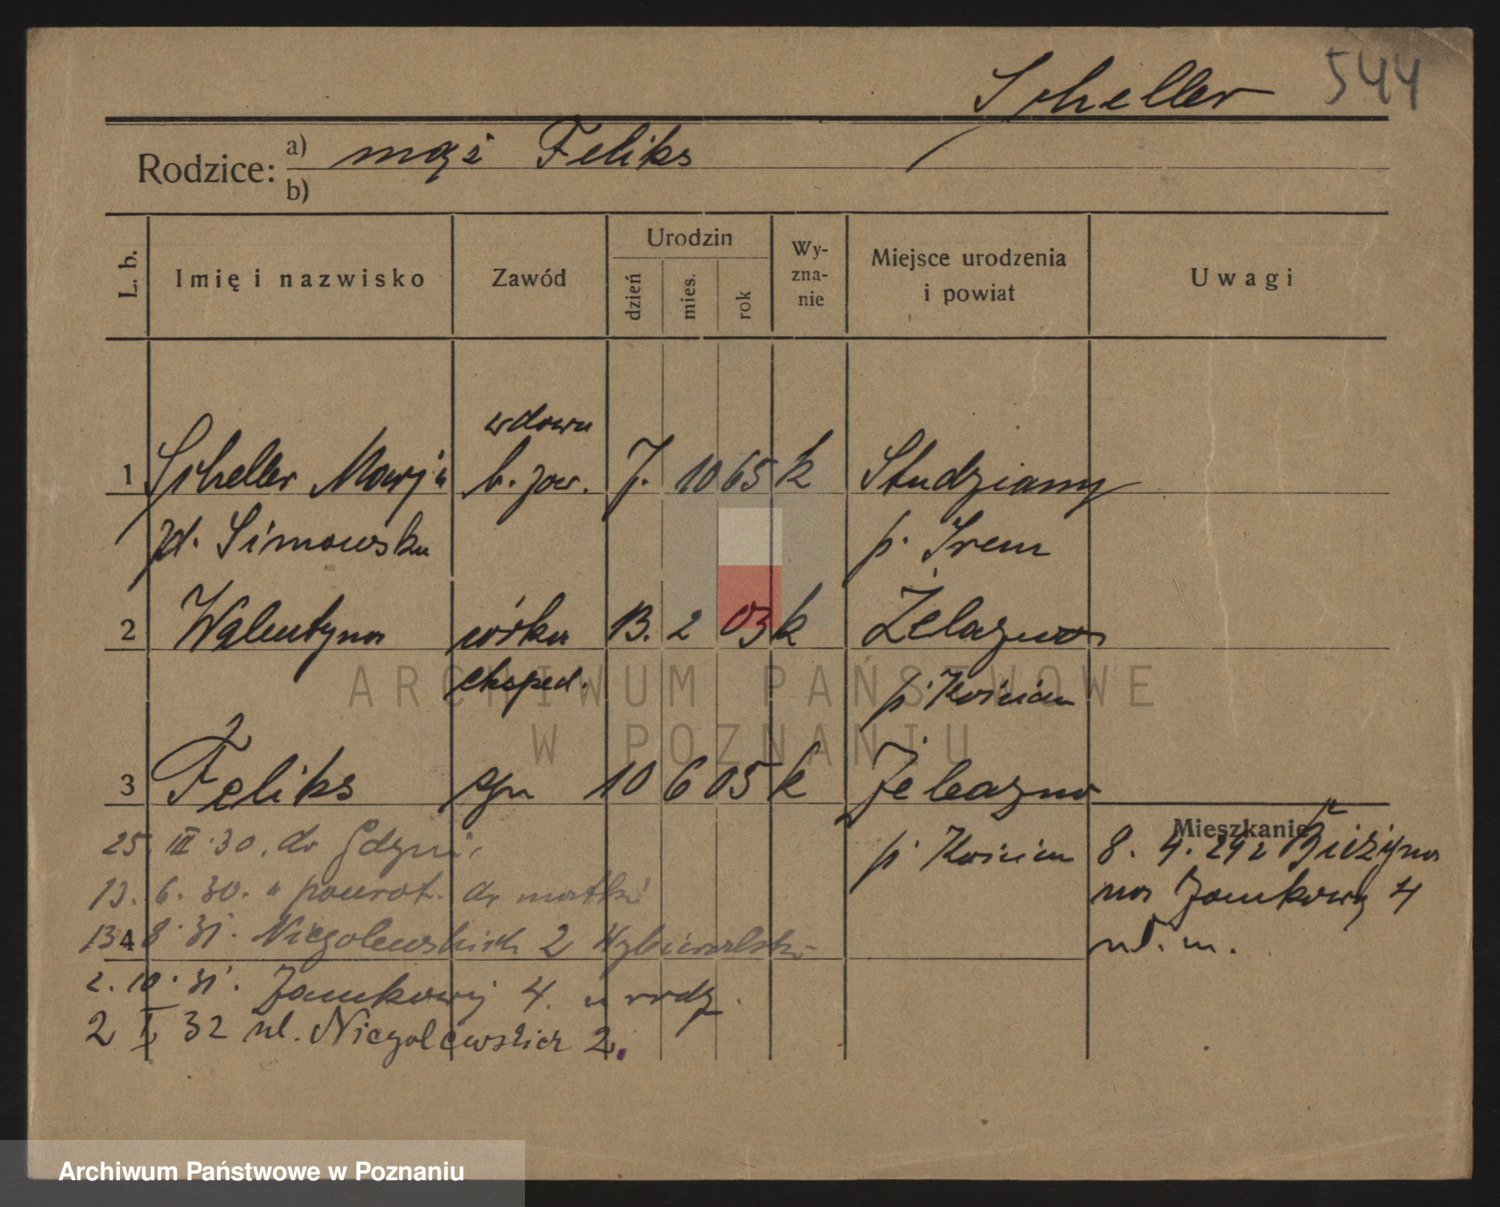 Scheller 544
Rodzice: a) mąż Feliks
b)
L. b. Imię i nazwisko Zawód Urodzin dzień mies. rok Wyznanie Miejsce urodzenia i powiat Uwagi
wdowa
1 Scheller Marja b. zaw. 7. 10 65 k Studzianny
zd. Simowska p. Śrem
2 Walentyna córka 13. 2 03 k Żelazno
eksped. p. Kościan
3 Feliks syn 10 6 05 k Żelazno
p. Kościan
Mieszkanie
8. 4. 29 z
na Zamkową 4
25. III. 30. do Gdyni
13. 6. 30. powrot. do matki
13 8. 31. Niegolewskich 2
4
2. 10. 31. Zamkowej 4. u rodz.
2 I 32 ul. Niegolewskich 2.
ARCHIWUM PAŃSTWOWE
W POZNANIU
Archiwum Państwowe w Poznaniu